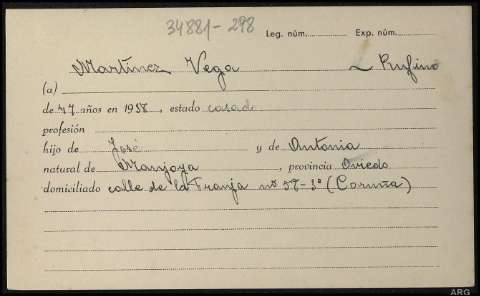 34881-298 Leg. núm. Exp. núm.
Martínez Vega ~ Rufino
(a)
de 47 años en 1938, estado casado
profesión
hijo de José y de Antonia
natural de Manjoya, provincia Oviedo
domiciliado calle de la Franja nº 57-3º (Coruña)
ARG